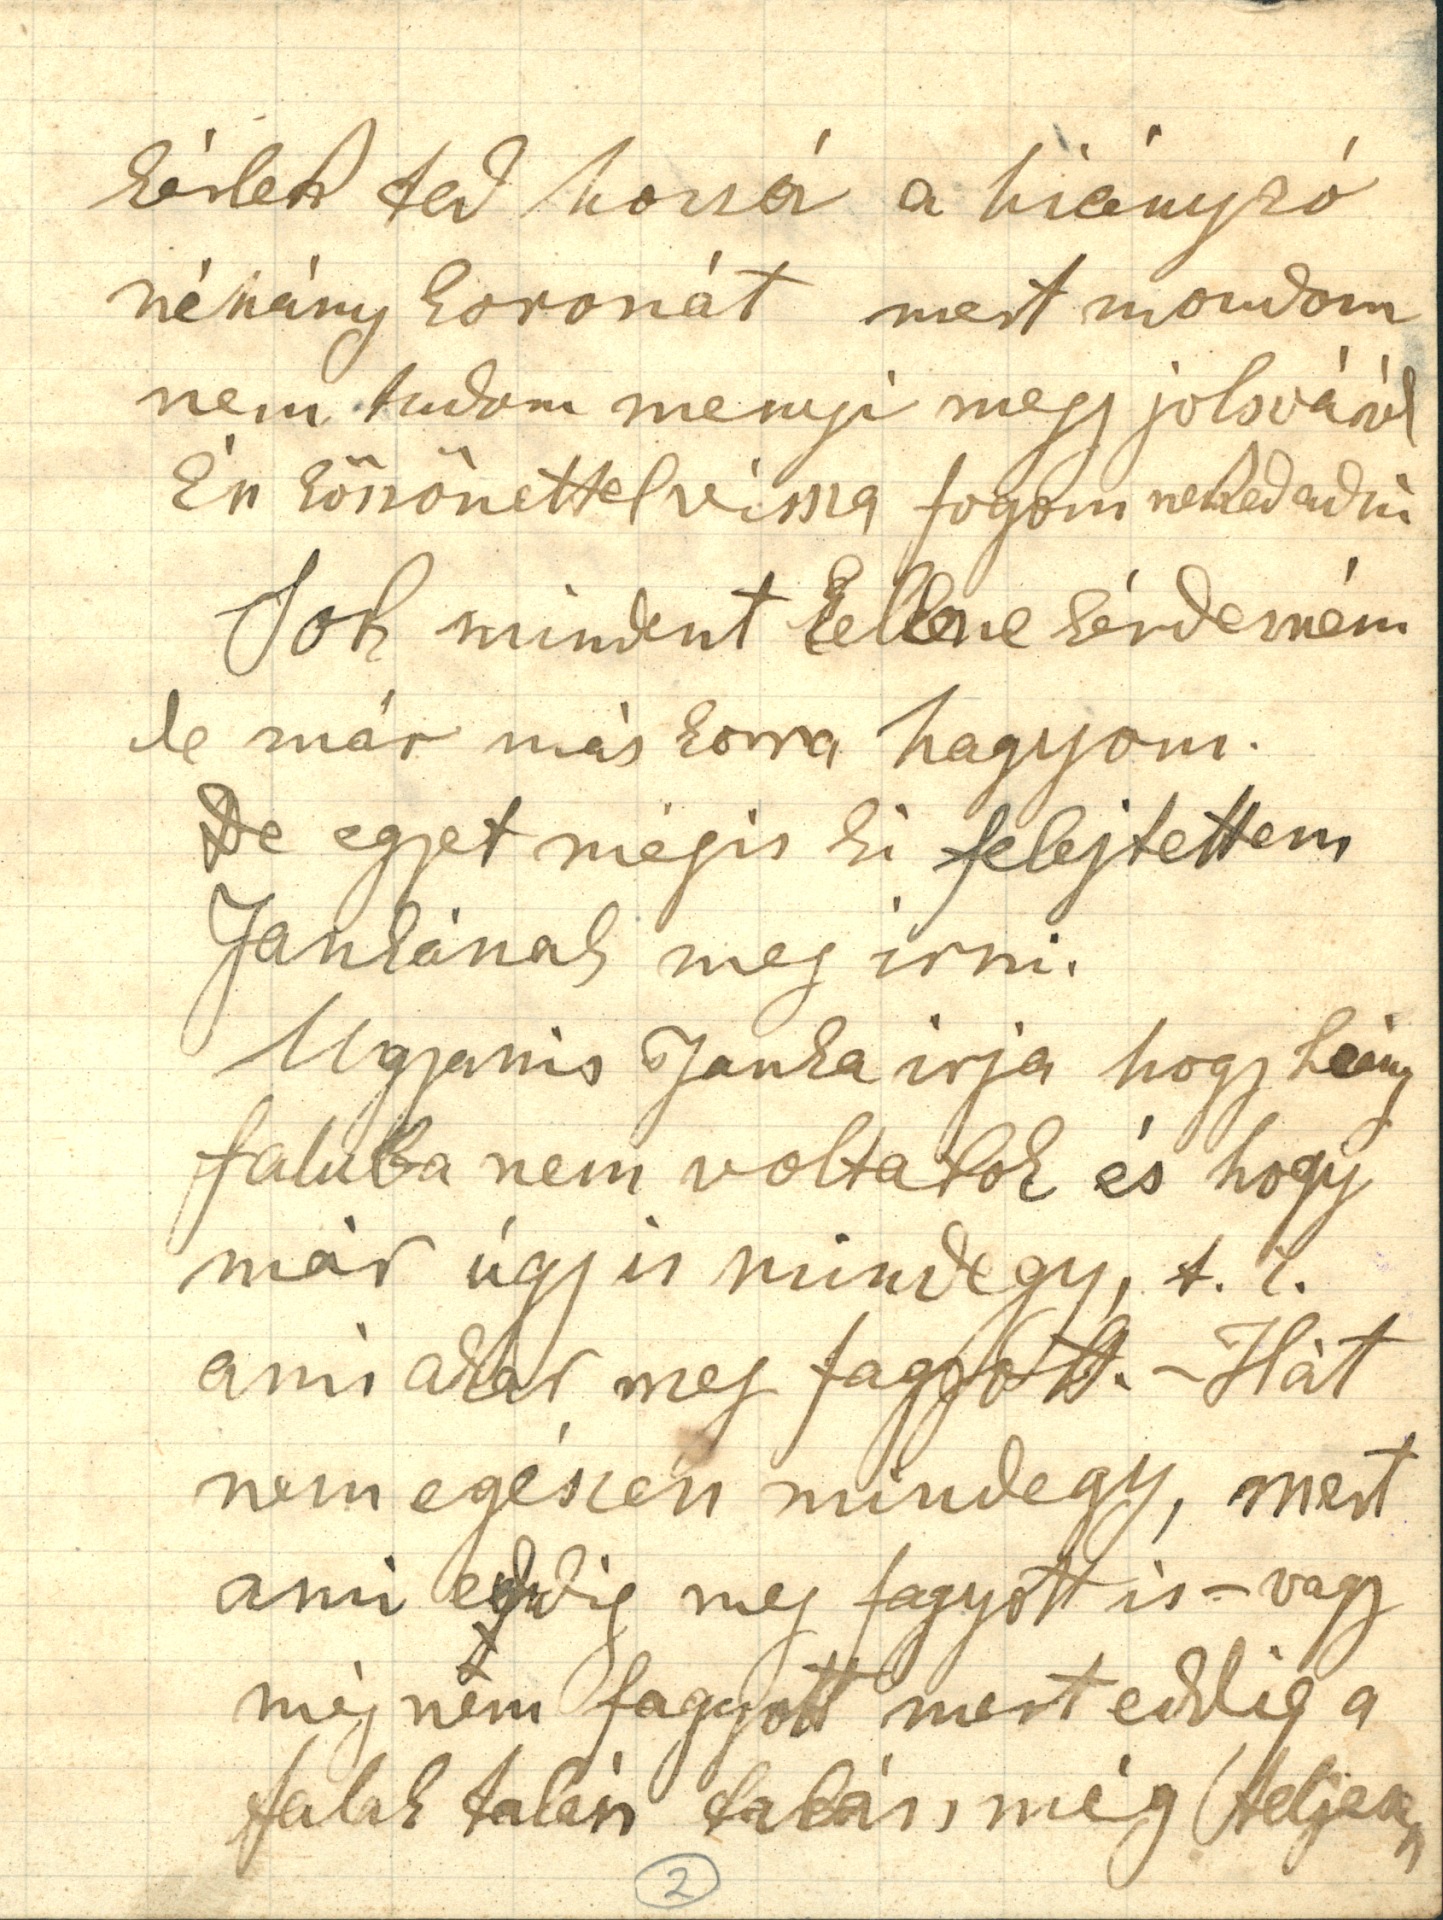 kérlek ted hozzá a hiányzó
néhány koronát mert mondom
nem tudom menyi megy jolsváról
Én köszönettel vissza fogom neked adni
Sok mindent kellene kérdezném
de már más korra hagyom.
De egyet mégis ki felejtettem
Jankának meg irni.
Ugyanis Janka irja hogy Leány
faluba nem voltatok és hogy
már úgy is mindegy, t. i.
ami akar meg fagyott. - Hát
nem egészen mindegy, mert
ami eddig meg fagyott is - vagy
még nem fagyott mert eddig a
falak talán talán, még (teljesen
2